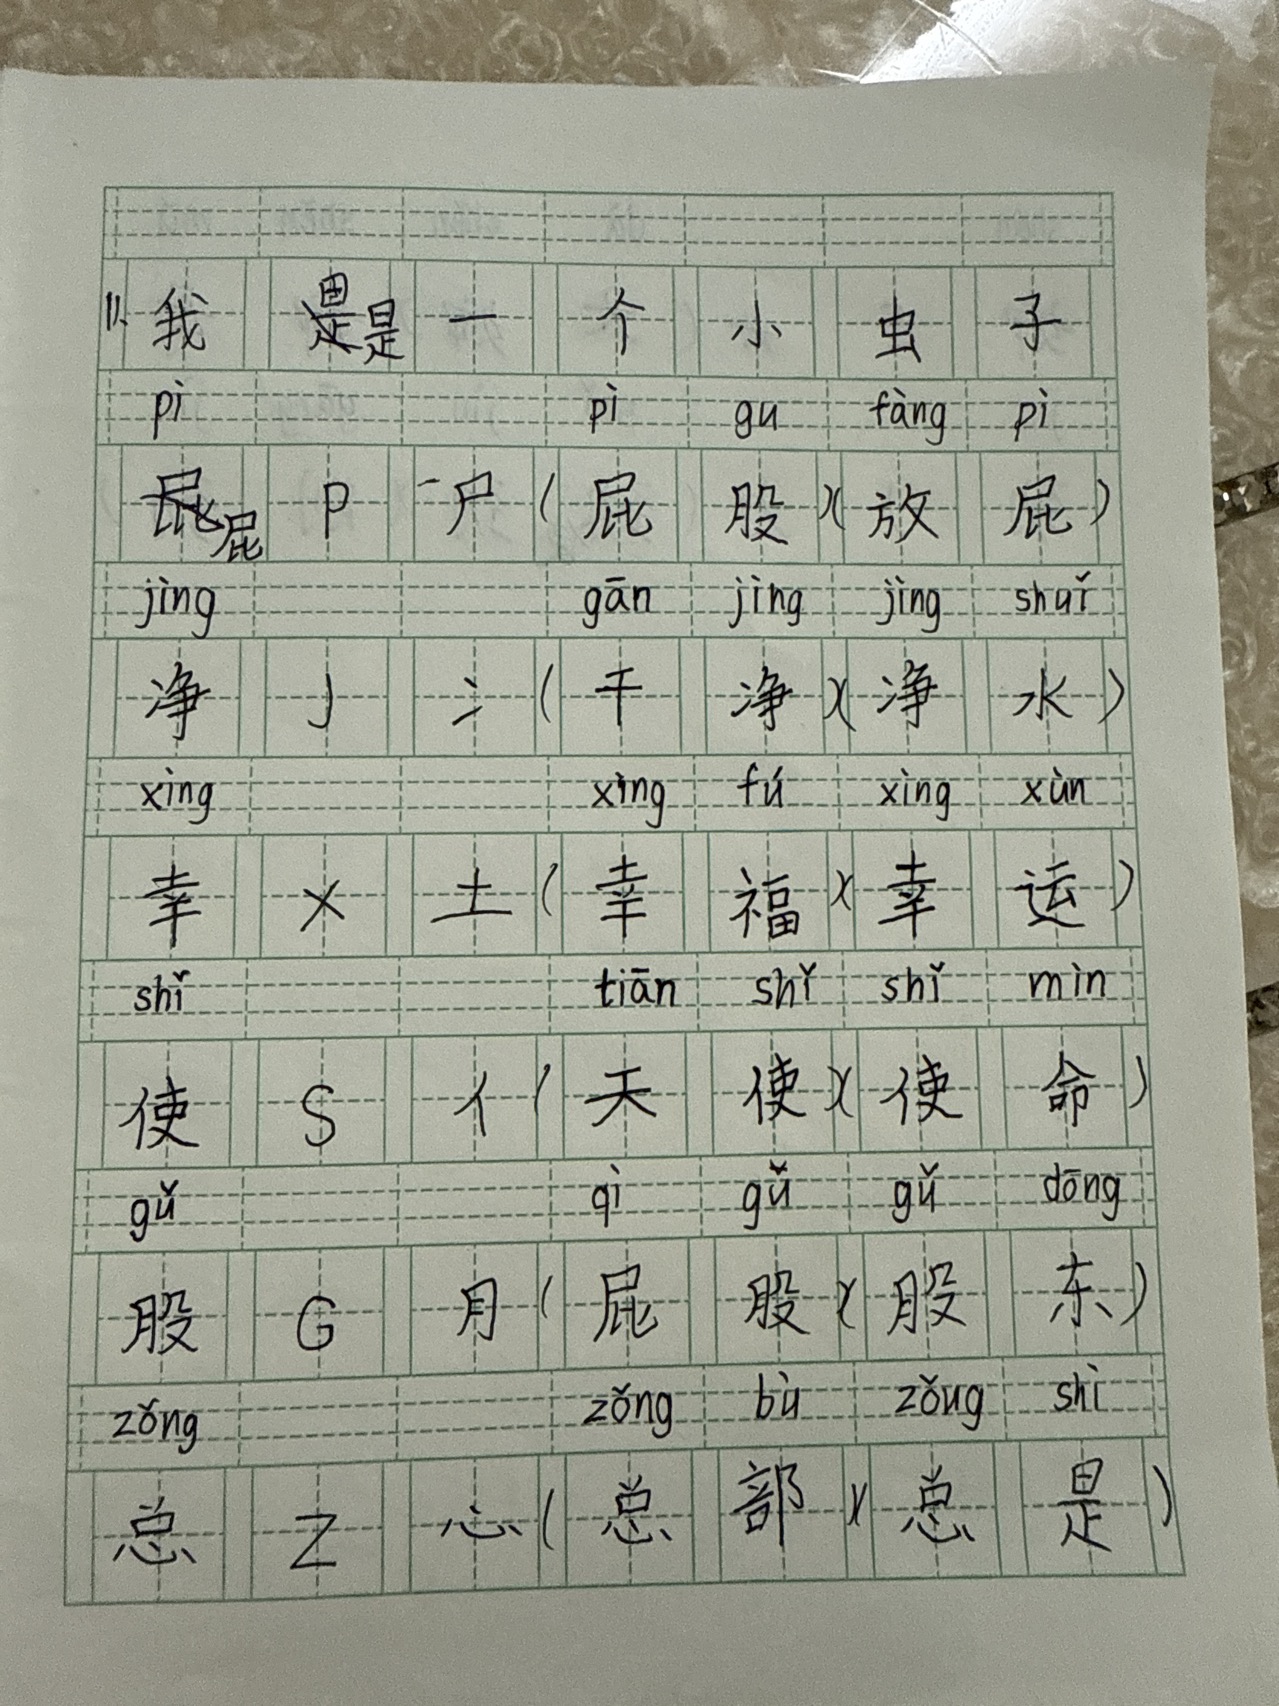 11、我是一个小虫子
pì pì gu fàng pì
屁 P 尸(屁股)(放屁)
jìng gān jìng jìng shuǐ
净 J 冫(干净)(净水)
xìng xìng fú xìng xùn
幸 X 土(幸福)(幸运)
shǐ tiān shǐ shǐ mìn
使 S 亻(天使)(使命)
gǔ qì gǔ gǔ dōng
股 G 月(屁股)(股东)
zǒng zǒng bù zǒng shì
总 Z 心(总部)(总是)